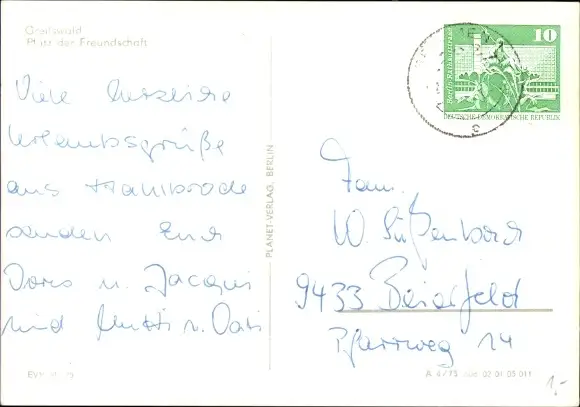 Greifswald
Platz der Freundschaft
Viele herzliche
Urlaubsgrüße
aus Stahlbrode
senden Euch
Doris u. Jacqui
und Mutti u. Vati
PLANET-VERLAG, BERLIN
10
DEUTSCHE DEMOKRATISCHE REPUBLIK
Fam.
W. Süßenbach
9433 Beierfeld
Pfarrweg 14
EVP
1,-